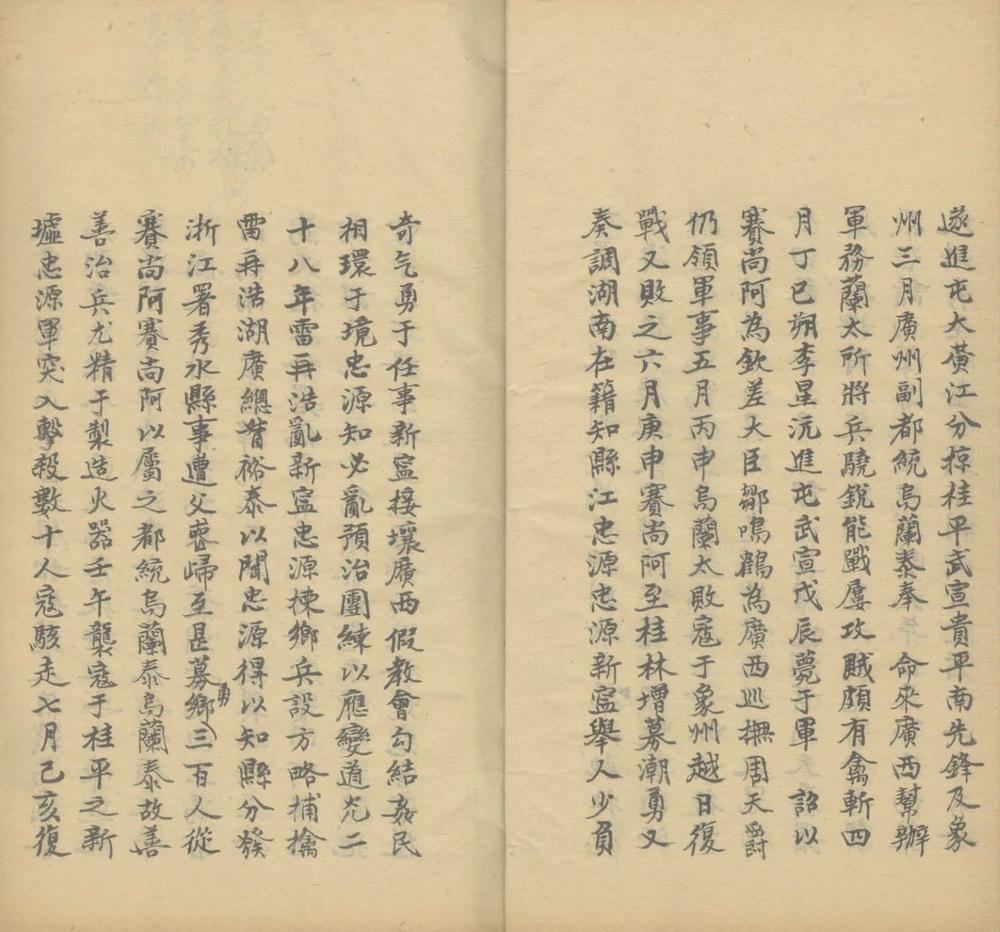 遂進屯大黃江分掠桂平武宣貴平南先鋒及象
州三月廣州副都統烏蘭泰奉 命來廣西幫辦
軍務蘭太所將兵驍銳能戰屢攻賊頗有禽斬四
月丁巳朔李星沅進屯武宣戊辰薨于軍 詔以
賽尚阿為欽差大臣鄒鳴鶴為廣西巡撫周天爵
仍領軍事五月丙申烏蘭太敗寇于象州越日復
戰又敗之六月庚申賽尚阿至桂林增募潮勇又
奏調湖南在籍知縣江忠源忠源新寍舉人少負
奇气勇于任事新寍接壤廣西假教會勾結姦民
相環于境忠源知必亂預治團練以應變道光二
十八年雷再浩亂新寍忠源楝鄉兵設方略捕擒
雷再浩湖廣總督裕泰以聞忠源得以知縣分發
浙江署秀水縣事遭父喪歸至是募鄉勇三百人從
賽尚阿賽尚阿以屬之都統烏蘭泰烏蘭泰故善
善治兵尤精于製造火器壬午襲寇于桂平之新
墟忠源軍突入擊殺數十人寇駭走七月己亥復